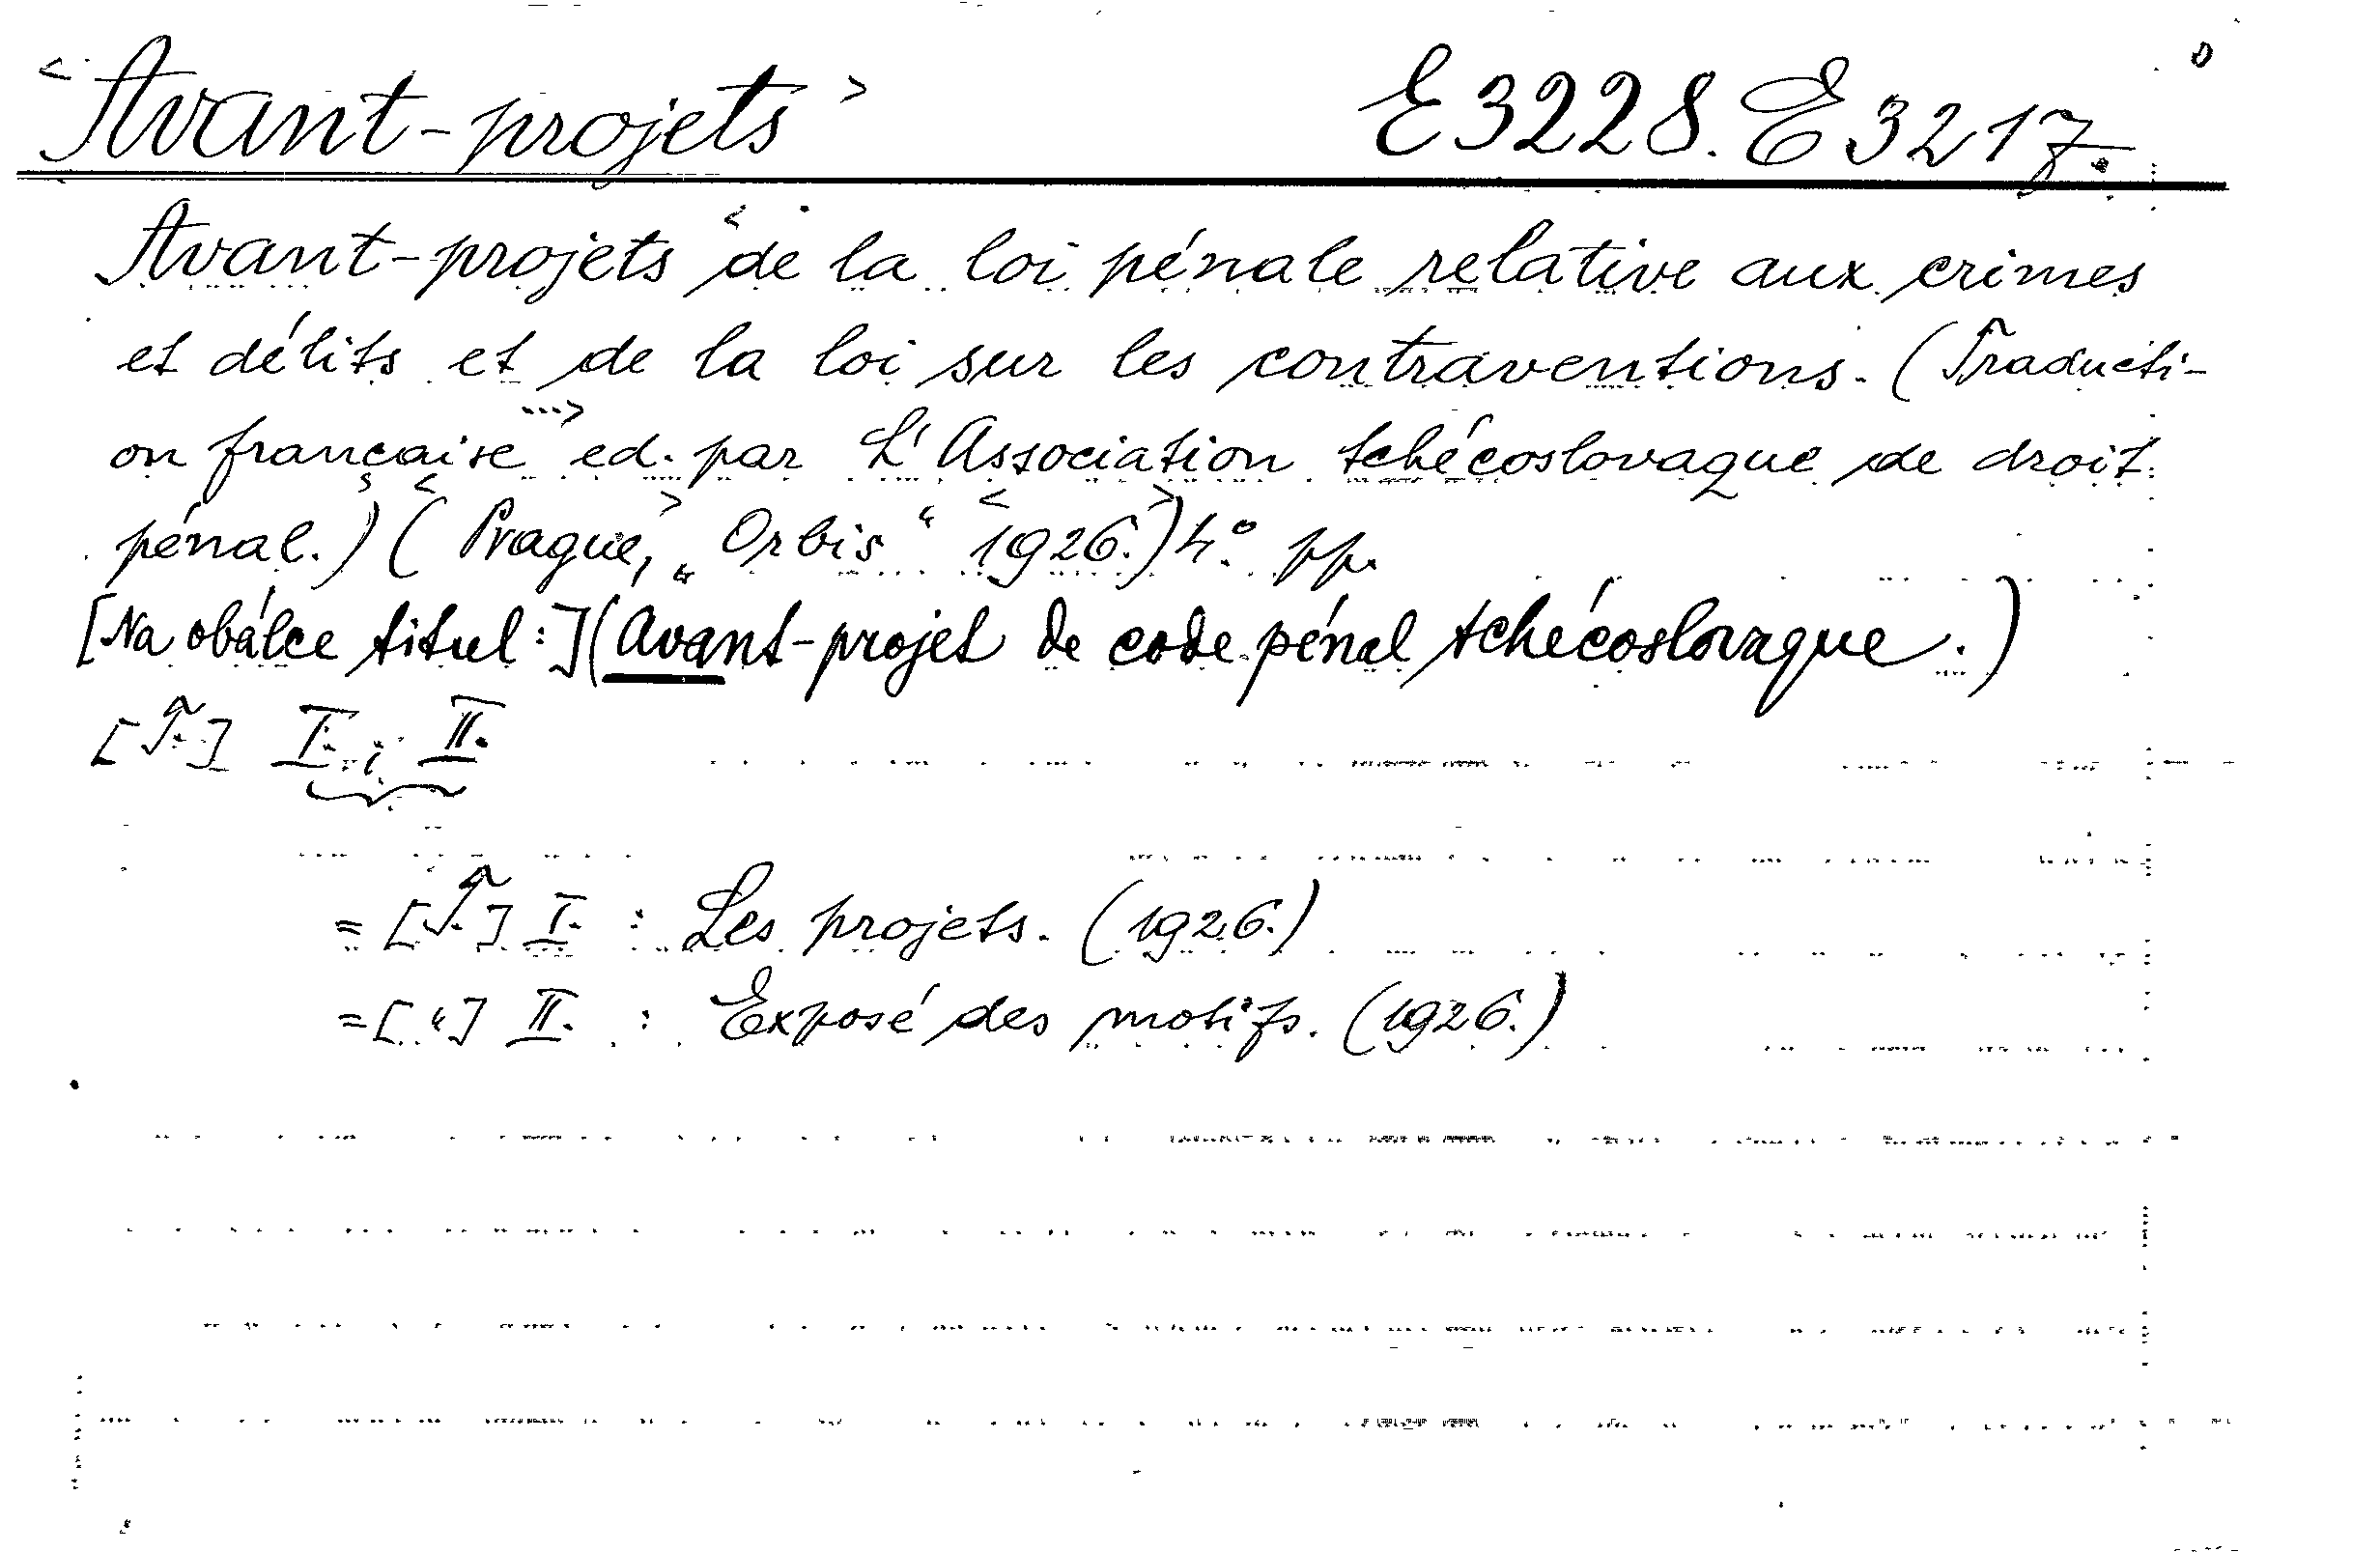 <Avant-projets> E 3228. E 3217.
Avant-projets <de la loi pénale relative aux crimes
et délits et de la loi sur les contraventions. (Traducti-
on française ...> ed. par L'Association tchécoslovaque de droit
pénal.) (<Prague,> „Orbis“ <1926.>) 4.° pp.
[Na obálce titul:] (Avant-projet de code pénal tchécoslovaque.)
[T.] I. i II.
= [T.] I. : Les projets. (1926.)
= [“] II. : Exposé des motifs. (1926.)